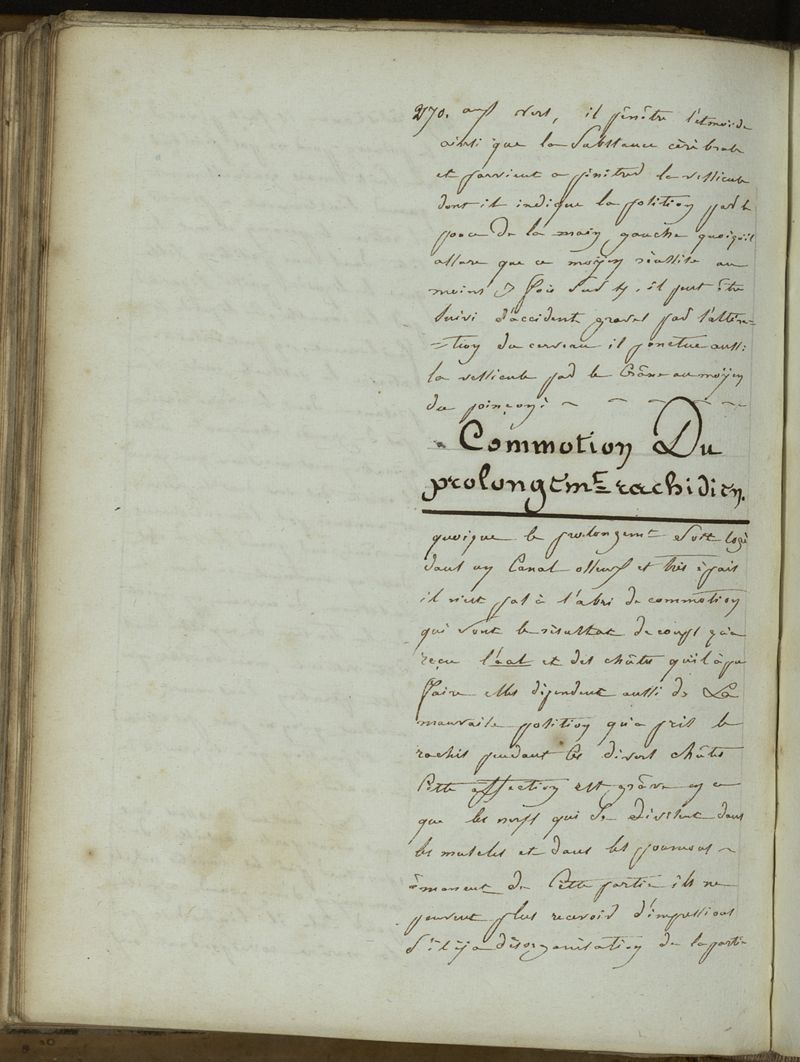 270. aux vers, il pénêtre l'etmoïde
ainsi que la Substance cérébrale
et parvient a pénétrer la vessicule
dont il indique la position par le
pouce de la main gauche quoiqu'il
assure que ce moÿen réussisse au
moins 3 fois sur 4, il peut être
suivi d'accidents graves par l'altéra=
=tion du cerveau il ponctue aussi
la vessicule par le Crâne au moÿen
du poinçon
Commotion Du
prolongemt rachidien.
quoique le prolongemt soit logé
dans un Canal osseux et très épais
il n'est pas à l'abri de commotion
qui sont le résultat de coups qu'a
reçu l'aal et des chûtes qu'il à pu
faire elles dépendent aussi de La
mauvaise position qu'a pris le
rachis pendant les divers chûtes
Cette affection est grâve en ce
que les nerfs qui se divisent dans
les muscles et dans les poumons
émanent de Cette partie ils ne
peuvent plus recevoir d'impressions
S'il ÿ a désorganisation de la partie